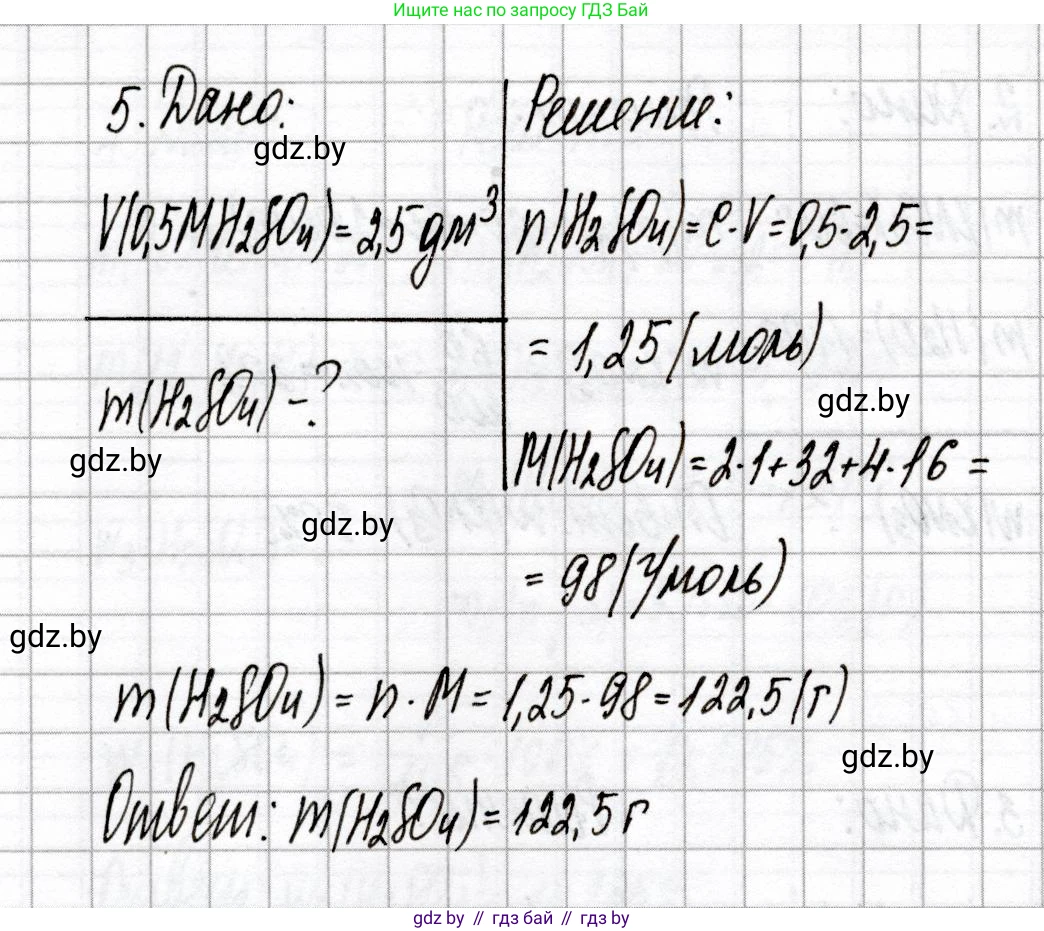 Ищите нас по запросу ГДЗ Бай
5. Дано:
gdz.by
V(0,5M H₂SO₄) = 2,5 дм³
m(H₂SO₄) - ?
gdz.by
gdz.by
Решение:
n(H₂SO₄) = C · V = 0,5 · 2,5 =
= 1,25 (моль)
gdz.by
M(H₂SO₄) = 2·1 + 32 + 4·16 =
= 98 (г/моль)
gdz.by
m(H₂SO₄) = n · M = 1,25 · 98 = 122,5 (г)
gdz.by
Ответ: m(H₂SO₄) = 122,5 г
gdz by // гдз бай // гдз by